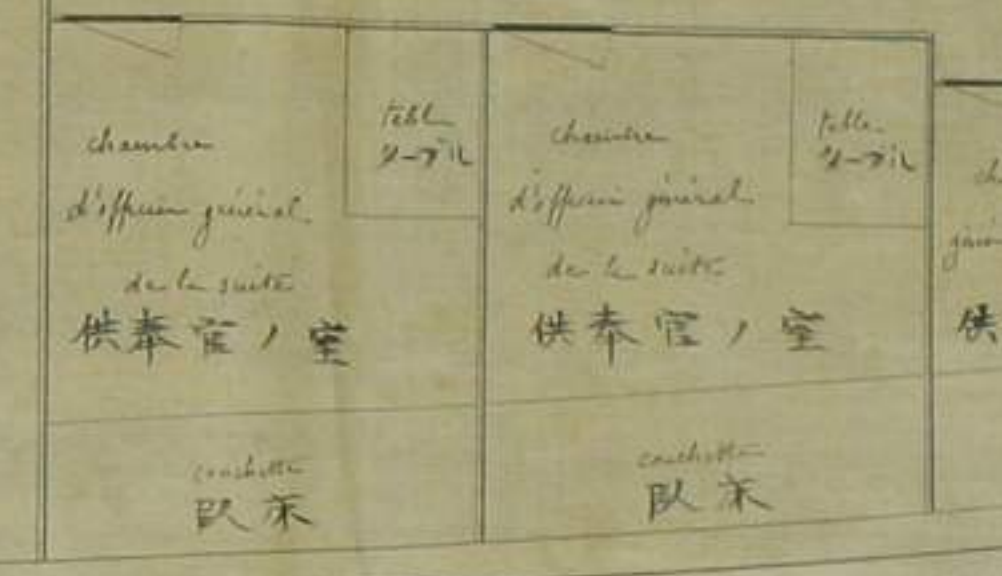 chambre
d'officier général
de la suite
供奉官ノ室
table
ターブル
couchette
臥床
chambre
d'officier général
de la suite
供奉官ノ室
table
ターブル
couchette
臥床
ch
géné
供